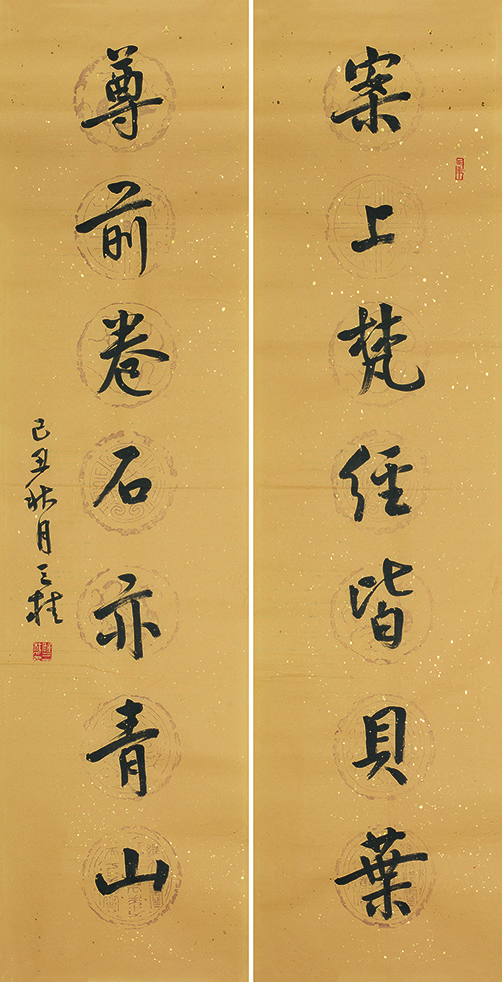 案上梵經皆貝葉
尊前卷石亦青山
己丑秋月三桂